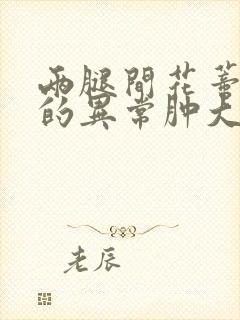 两腿間花蒂
的異常肿大
老辰